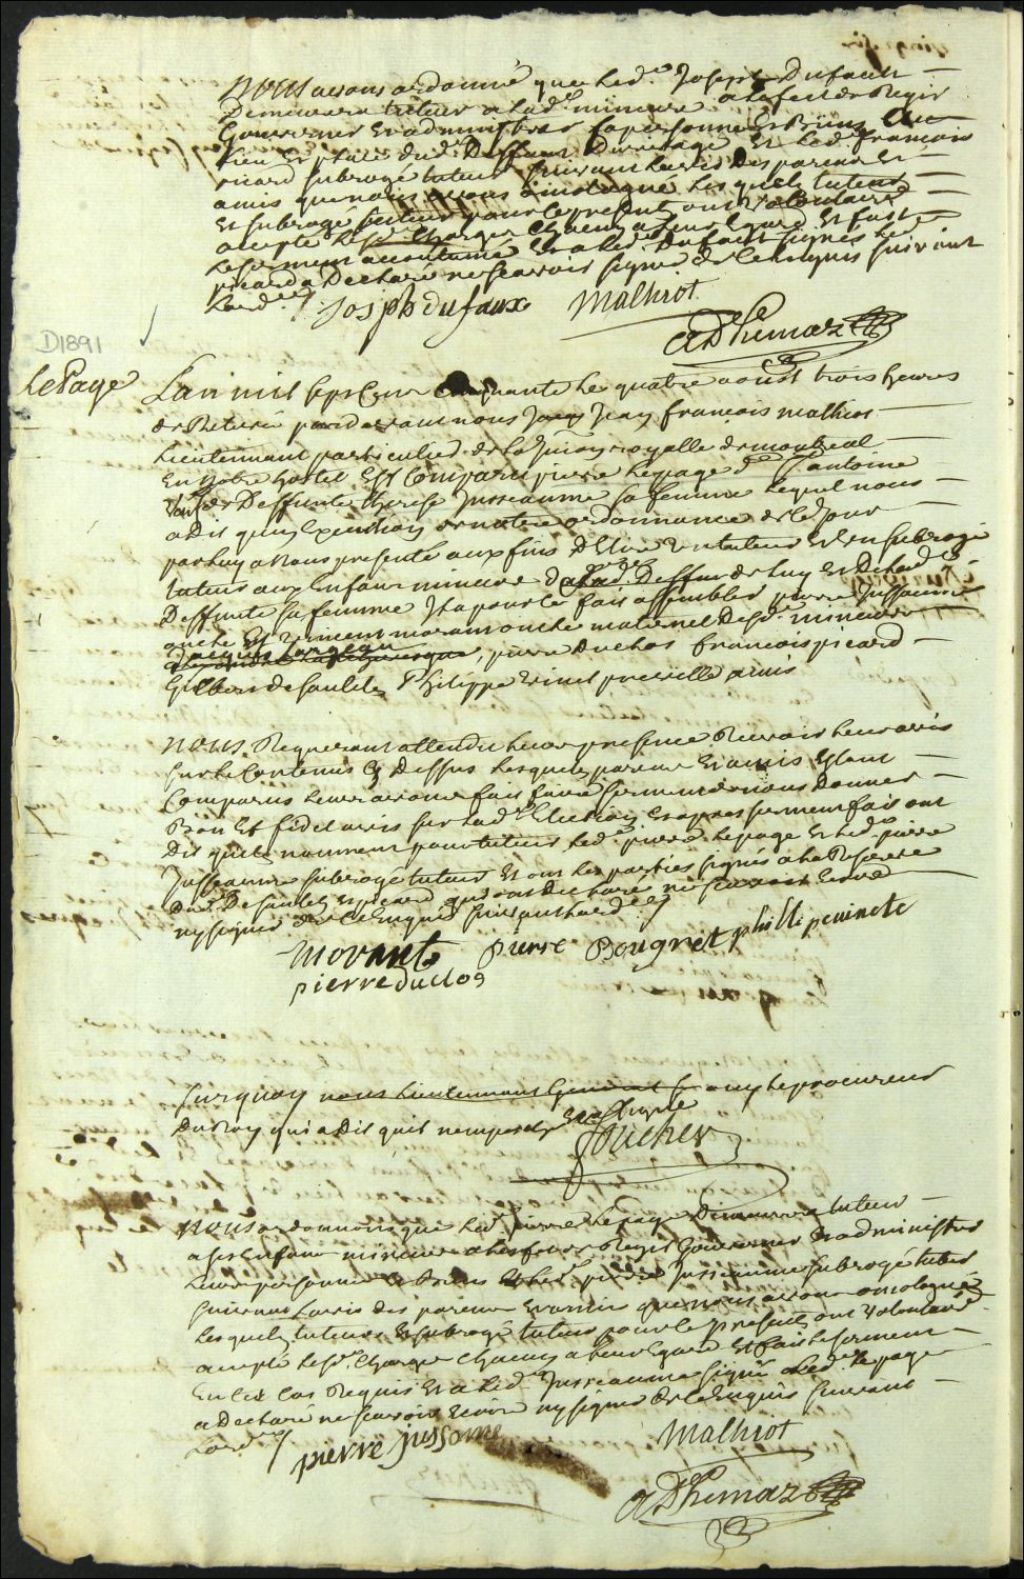 Nous avons ordonné que led. Joseph Dufault
Demeurera tuteur a lad. mineure a leffect de Regir
Gouverner et administrer sa personne et Biens au
lieu et place dud. Deffunt et led. francois
picard subrogé tuteur suivant lavis des parens et
amis que nous avons omologué lesquels tuteur
et subrogé tuteur pour ce present ont volontaire
accepté lesd. Charges chacun a leur Egard et fait
le serment accoutumé et a led. Dufault signés led.
picard a Declaré ne scavoir signé de ce Enquis suivant
Lord.
Josph dufaux Malhiot
Adhemar
D1891
LePage
Lan mil sept Cent Cinquante le quatre aoust trois heures
de Relevé pardevant nous Jean francois malhiot
Lieutenant particulier de la Juridiction royalle de montreal
En notre hostel Est Comparu pierre Lepage dt St antoine
veuf de Deffunte therese Jusseaume sa femme lequel nous
a dit quen Execution de notre ordonnance de ce Jour
par luy a Nous presenté aux fins DElire un tuteur et un subrogé
tuteur aux Enfans mineurs de luy et de lad.
Deffunte sa femme Il a pour ce fait assembler pierre Jusseaume
oncle et vincent morant oncle maternel Desd. mineurs
pierre Duclos francois picard
Gilbert desautels Philippe vinet preville amis
Nous Requerant attendu leur presence Recevoir leurs avis
sur le Contenu Cy Dessus lesquels parens et amis Estant
Comparus leur avons fait faire serment de nous Donner
Bon et fidel avis sur lad. Election et apres serment fait ont
Dit quils nomment pour tuteur led. pierre Lepage et led. pierre
Jusseaume subrogé tuteur et ont les parties signés a la Reserve
Dud. Desautels et picard qui ont Declaré ne scavoir Ecrire
ny signer de ce Enquis suivant lord.
Morant pierre Bougret phillipe vinete
pierre duclos
Surquoy nous Lieutenant General ouy le procureur
Du Roy qui a Dit quil nempesche
foucher
Nous ordonnons que led. pierre Lepage Demeurera tuteur
a ses Enfans mineurs a leffect de Regir Gouverner et administrer
leurs personnes et Biens et led. pierre Jusseaume subrogé tuteur
suivant Lavis des parens et amis que nous avons omologué
lesquels tuteurs et subrogé tuteur pour ce presents ont volontaire
accepté lesd. Charges chacun a leur Egard et fait le serment
En tel cas Requis et a led. Jusseaume signé et led. Lepage
a Declaré ne scavoir Ecrire ny signer de ce Enquis suivant
Lord.
pierre jussome Malhiot
Adhemar